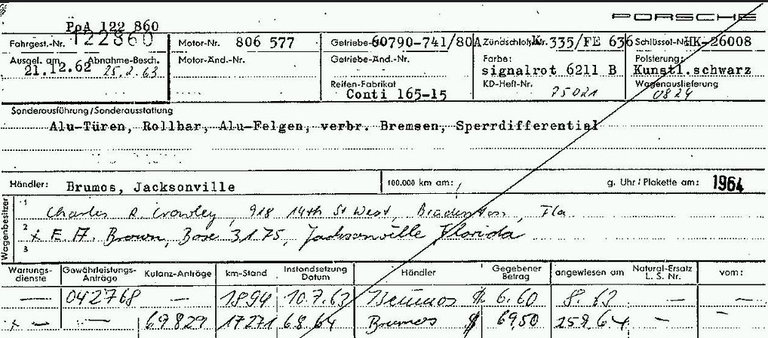 PORSCHE
PoA 122 860
Fahrgest.-Nr. 122860 Motor-Nr. 806 577 Getriebe- 60790-741/80A Zündschloß-Nr. K 335/FE 636 Schlüssel-Nr. HK-26008
Ausgel. am Abnahme-Besch. Motor-Änd.-Nr. Getriebe-Änd.-Nr. Farbe: Polsterung:
21.12.62 25.2.63 signalrot 6211 B Kunstl.schwarz
Reifen-Fabrikat KD-Heft-Nr. Wagenauslieferung
Conti 165-15 75021 0824
Sonderausführung/Sonderausstattung
Alu-Türen, Rollbar, Alu-Felgen, verbr. Bremsen, Sperrdifferential
Händler: Brumos, Jacksonville 100.000 km am: g. Uhr/Plakette am: 1964
Wagenbesitzer
1 Charles R. Crowley, 918 14th St West, Bradenton, Fla
2 x E. A. Brown, Box 3175, Jacksonville Florida
3
Wartungsdienste Gewährleistungs-Anträge Kulanz-Anträge km-Stand Instandsetzung Datum Händler Gegebener Betrag angewiesen am Natural-Ersatz L. S. Nr. vom:
— 042768 — 1894 10.7.63 Brumos $ 6.60 8.63 — —
x — — 69829 17271 6.8.64 Brumos $ 69.50 25.9.64 — —